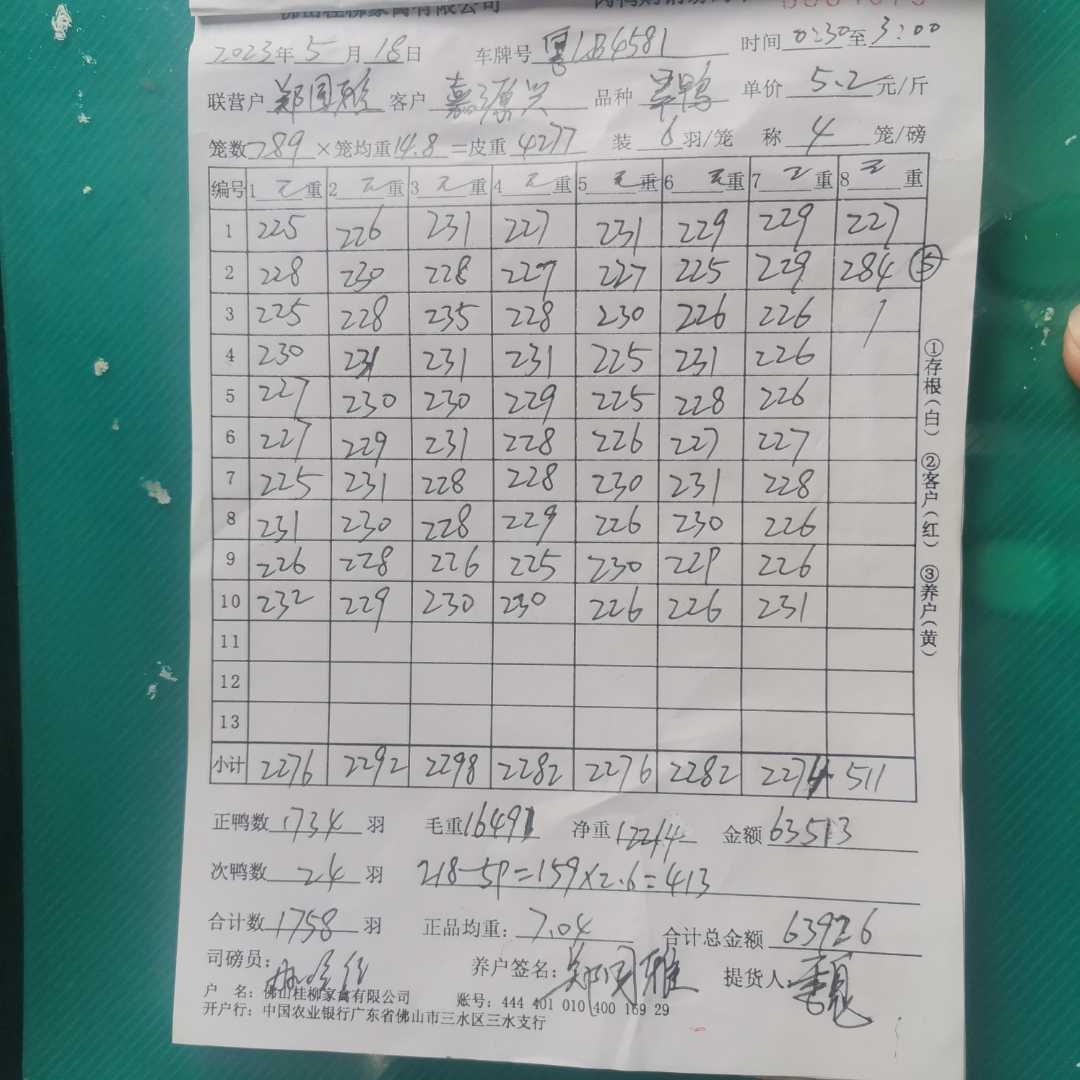 佛山桂柳家禽有限公司
2023年 5 月 18 日 车牌号 粤LB4581 时间 0:30 至 3:00
联营户 郑国雅 客户 嘉源兴 品种 单价 5.2 元/斤
笼数 289 ×笼均重 14.8 =皮重 4277 装 6 羽/笼 称 4 笼/磅
编号 1 毛 重 2 毛 重 3 毛 重 4 毛 重 5 毛 重 6 毛 重 7 毛 重 8 毛 重
1 225 226 231 227 231 229 229 227
2 228 230 228 227 227 225 229 284 ⑤
3 225 228 235 228 230 226 226 /
4 230 231 231 231 225 231 226
5 227 230 230 229 225 228 226
6 227 229 231 228 226 227 227
7 225 231 228 228 230 231 228
8 231 230 228 229 226 230 226
9 226 228 226 225 230 229 226
10 232 229 230 230 226 226 231
11
12
13
小计 2276 2292 2298 2282 2276 2282 2274 511
①存根(白) ②客户(红) ③养户(黄)
正鸭数 1734 羽 毛重 16491 净重 12214 金额 63513
次鸭数 24 羽 218-59=159×2.6=413
合计数 1758 羽 正品均重: 7.04 合计总金额 63926
司磅员: 养户签名: 郑国雅 提货人
户 名: 佛山桂柳家禽有限公司 账号: 444 401 010 400 169 29
开户行: 中国农业银行广东省佛山市三水区三水支行